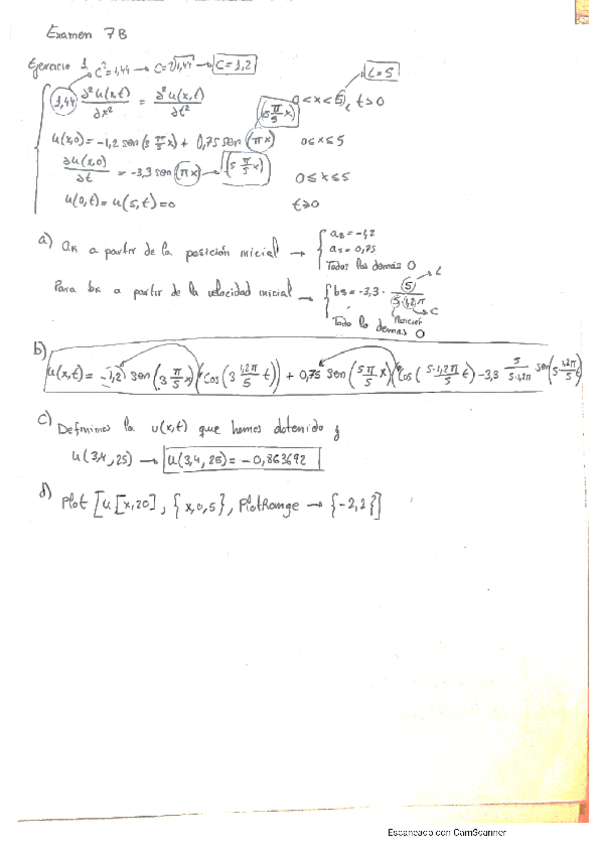 Examen 7B
Ejercicio 1 c² = 1,44 → c = √1,44 → c = 1,2
L = 5
1,44 ∂²u(x,t)/∂x² = ∂²u(x,t)/∂t² 0 < x < 5, t > 0
(5 π/5 x)
u(x,0) = -1,2 sen(3 π/5 x) + 0,75 sen(πx) 0 ≤ x ≤ 5
∂u(x,0)/∂t = -3,3 sen(πx) → (5 π/5 x) 0 ≤ x ≤ 5
u(0,t) = u(5,t) = 0 t ≥ 0
a) ak a partir de la posición inicial → { a3 = -1,2
a5 = 0,75
Todos los demás 0
Para bk a partir de la velocidad inicial → { b5 = -3,3 · 5/(5·1,2π) L
Posición C
Todo lo demás 0
b) u(x,t) = -1,2 sen(3 π/5 x)(cos(3 1,2π/5 t)) + 0,75 sen(5π/5 x)(cos(5·1,2π/5 t) - 3,3 5/(5·1,2π) sen(5 1,2π/5 t)
c) Definimos la u(x,t) que hemos obtenido y
u(3,4,25) → u(3,4,25) = -0,863692
d) Plot[u[x,20], {x,0,5}, PlotRange → {-2,2}]
Escaneado con CamScanner